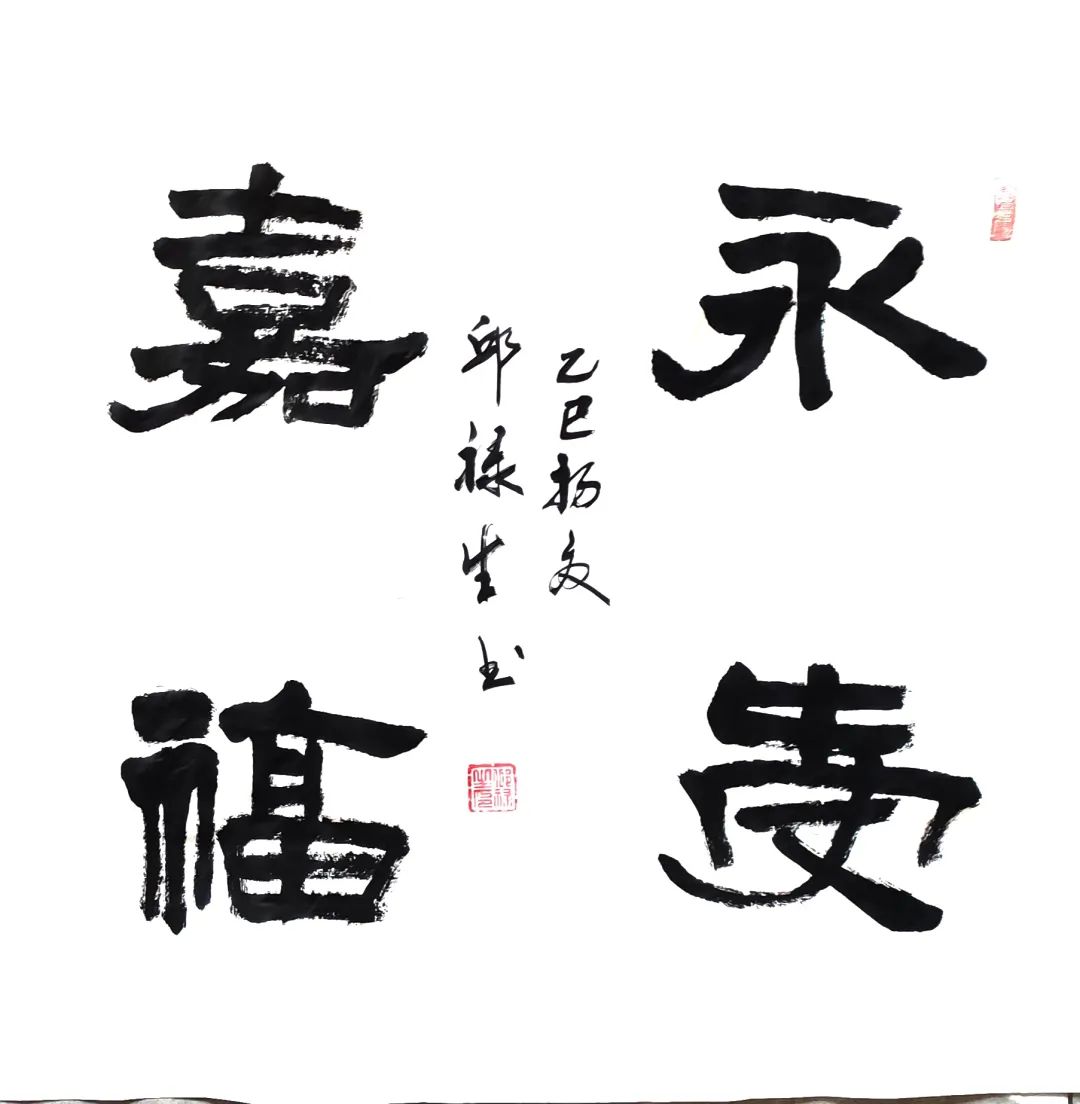 永受
嘉福
乙巳初夏
邱禄生书